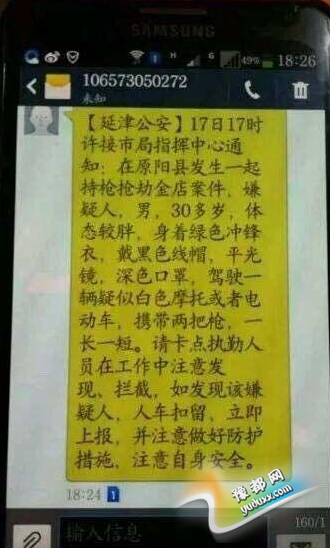 49% 18:26
106573050272
未知
【延津公安】17日17时
许接市局指挥中心通
知：在原阳县发生一起
持枪抢劫金店案件，嫌
疑人，男，30多岁，体
态较胖，身着绿色冲锋
衣，戴黑色线帽，平光
镜，深色口罩，驾驶一
辆疑似白色摩托或者电
动车，携带两把枪，一
长一短。请卡点执勤人
员在工作中注意发
现、拦截，如发现该嫌
疑人，人车扣留，立即
上报，并注意做好防护
措施，注意自身安全。
18:24 1
豫都网
yuduxx.com
160/1
输入信息